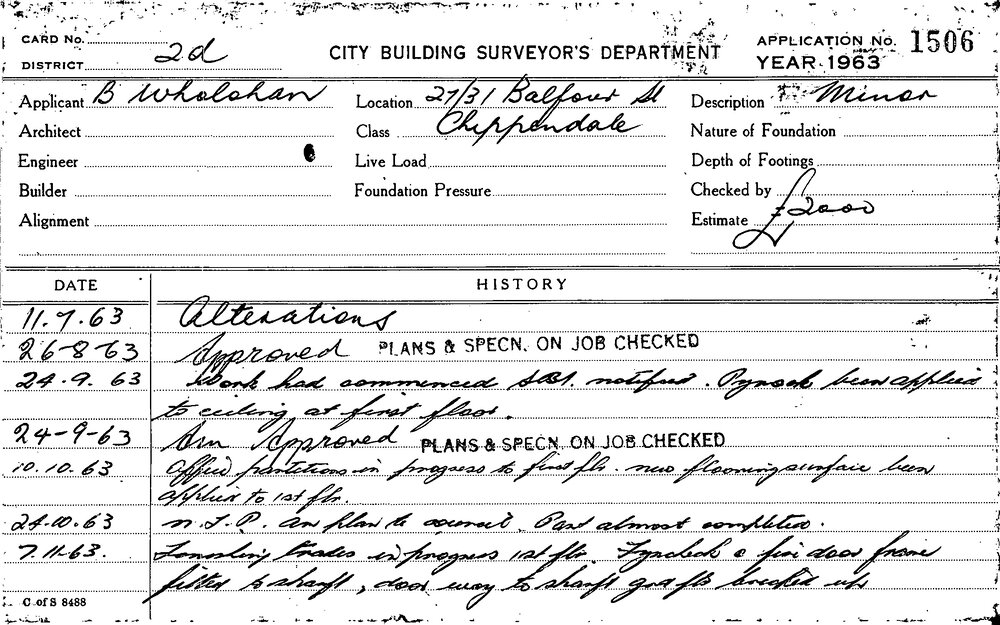 CARD No.
DISTRICT 2d
CITY BUILDING SURVEYOR'S DEPARTMENT
APPLICATION No. 1506
YEAR 1963
Applicant B Wholohan
Location 27/31 Balfour St
Description Minor
Architect
Class Chippendale
Nature of Foundation
Engineer
Live Load
Depth of Footings
Builder
Foundation Pressure
Checked by
Alignment
Estimate £2000
DATE HISTORY
11.7.63 Alterations
26-8-63 Approved PLANS & SPECN. ON JOB CHECKED
24.9.63 Work had commenced notified. been applied
to ceiling at first floor.
24-9-63 Am Approved PLANS & SPECN. ON JOB CHECKED
10.10.63 Office partitions in progress to first flr. new flooring surface been
applied to 1st flr.
24.10.63 plan to council. Part almost completed.
7.11.63. trades in progress 1st flr. fire door frame
fitted to shaft, door way to shaft grd flr bricked up
C of S 8488